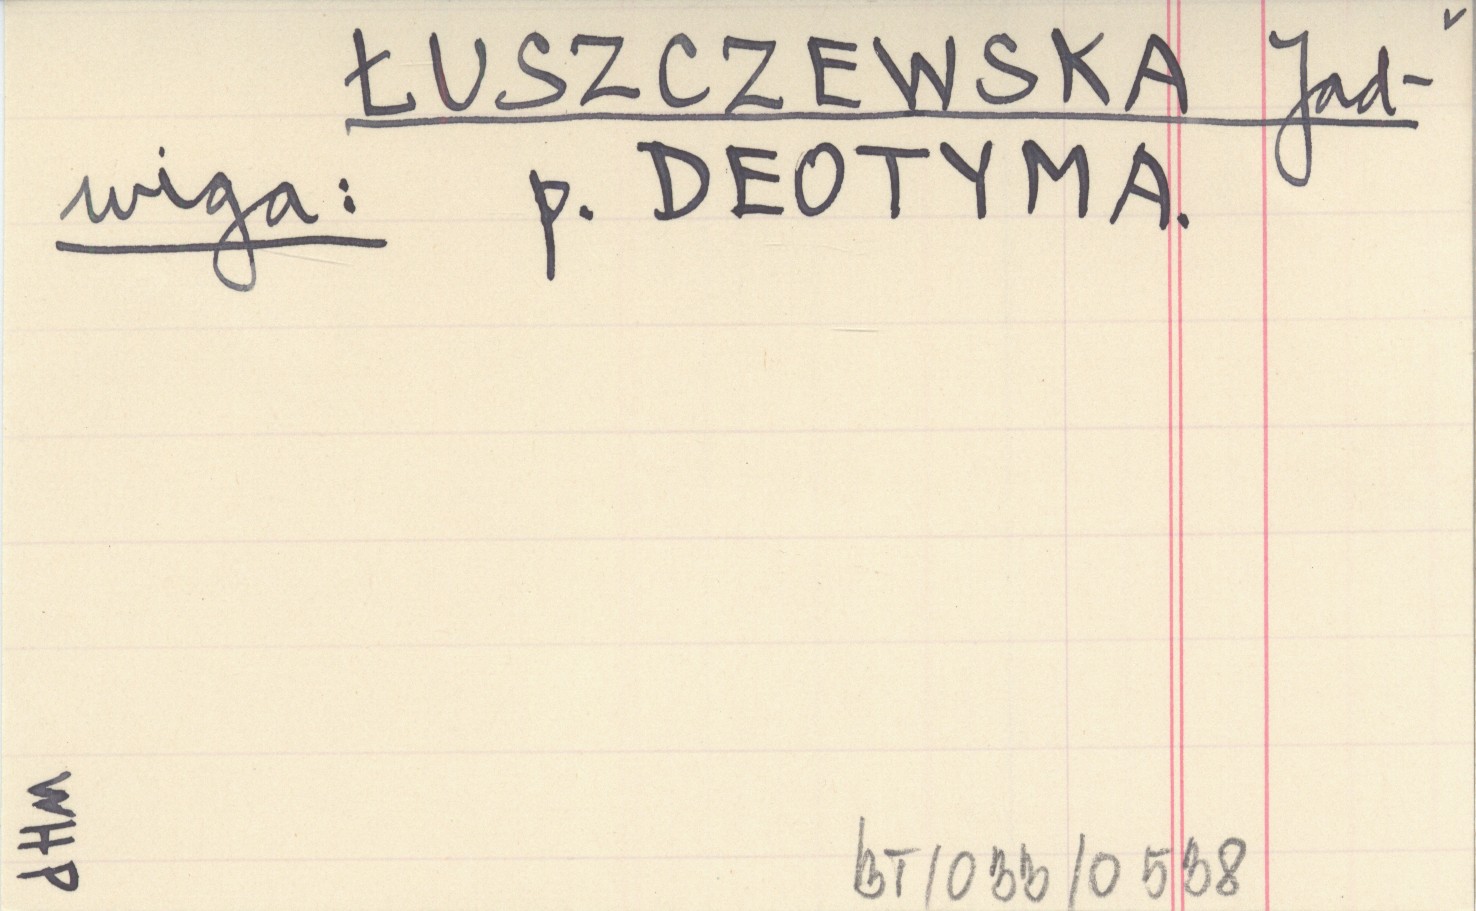 ŁUSZCZEWSKA Jad-
wiga: p. DEOTYMA.
WHP
BT/033/0538